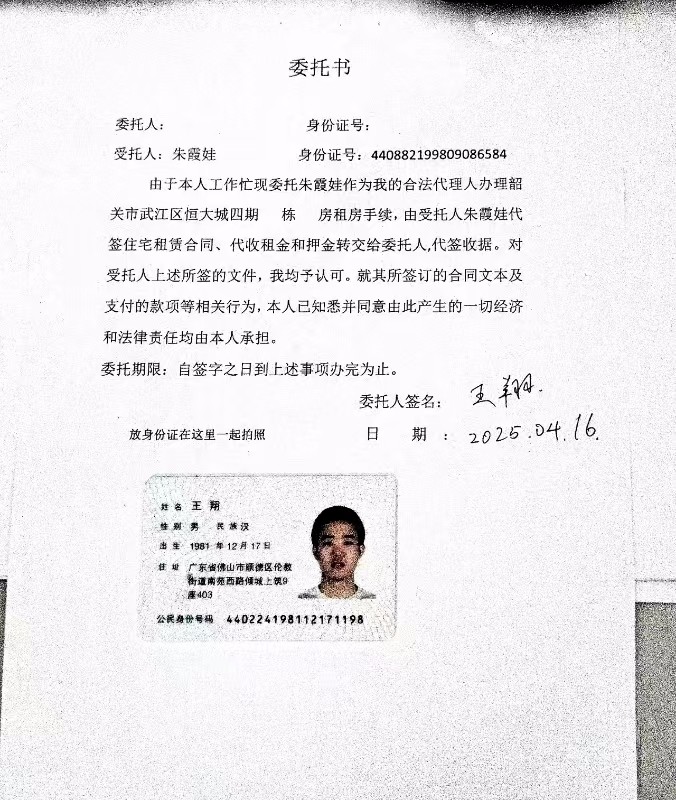 委托书
委托人： 身份证号：
受托人：朱霞娃 身份证号：440882199809086584
由于本人工作忙现委托朱霞娃作为我的合法代理人办理韶
关市武江区恒大城四期 栋 房租房手续，由受托人朱霞娃代
签住宅租赁合同、代收租金和押金转交给委托人,代签收据。对
受托人上述所签的文件，我均予认可。就其所签订的合同文本及
支付的款项等相关行为，本人已知悉并同意由此产生的一切经济
和法律责任均由本人承担。
委托期限：自签字之日到上述事项办完为止。
委托人签名： 王翔.
放身份证在这里一起拍照 日 期 ： 2025.04.16.
姓名 王 翔
性别 男 民族 汉
出生 1981 年 12 月 17 日
住址 广东省佛山市顺德区伦教
街道南苑西路倾城上筑9
座403
公民身份号码 440224198112171198